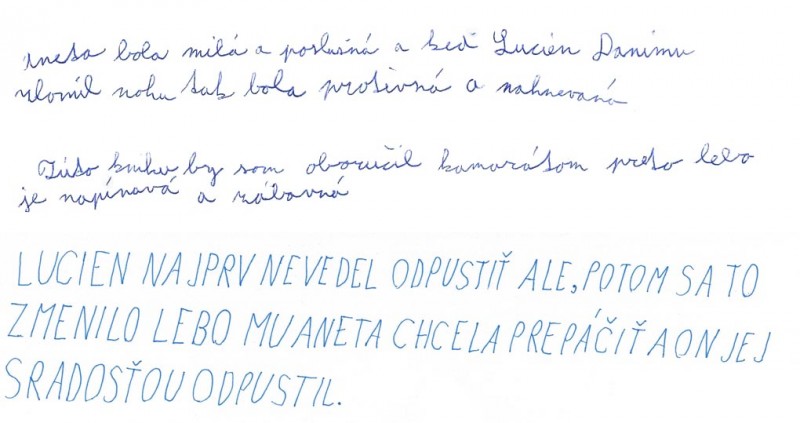 Aneta bola milá a poslušná a keď Lucien Danimu
zlomil nohu tak bola protivná a nahnevaná
Túto knihu by som oboručil kamarátom preto lebo
je napínavá a zábavná
LUCIEN NAJPRV NEVEDEL ODPUSTIŤ ALE, POTOM SA TO
ZMENILO LEBO MU ANETA CHCELA PREPÁČIŤ A ON JEJ
S RADOSŤOU ODPUSTIL.